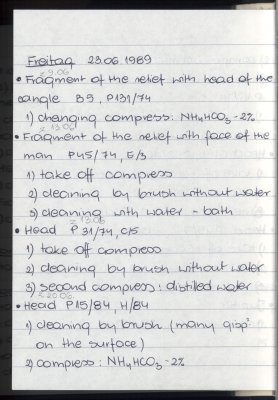 Freitag 23.06.1989
z 9.06
• Fragment of the relief with head of the
eangle B9, P131/74
1) changing compress: NH4HCO3 - 2%
z 13.06
• Fragment of the relief with face of the
man P45/74, E/3
1) take off compress
2) cleaning by brush without water
3) cleaning with water - bath
z 13.06
• Head P 31/74, C/5
1) take off compress
2) cleaning by brush without water
3) second compress: distilled water
z 20.06.
• Head P15/84, H/84
1) cleaning by brush (many
on the surface)
2) compress: NH4HCO3 - 2%